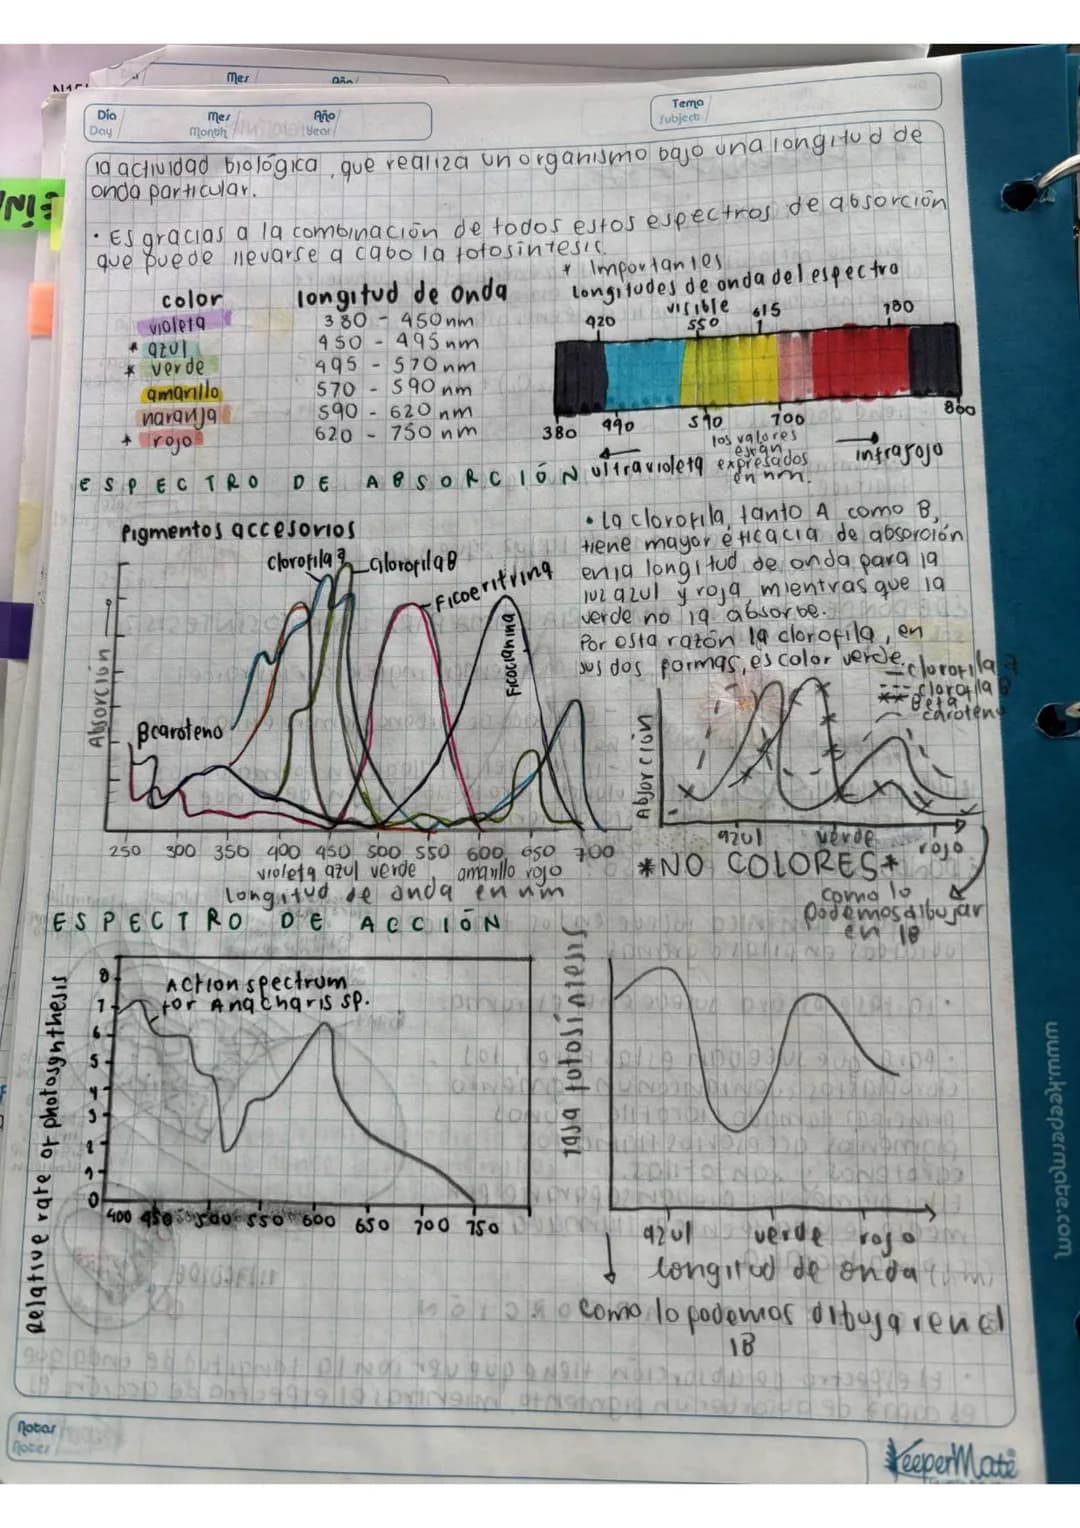 Mes
Año
Día
Day
Mes
Month
Año
Year
Tema
Subject
la actividad biológica, que realiza un organismo bajo una longitud de
onda particular.
· Es gracias a la combinación de todos estos espectros de absorción
que puede llevarse a cabo la fotosíntesis.
* Importantes
longitudes de onda del espectro
visible
color
longitud de onda
violeta 380 - 450nm
* azul 450 - 495nm
* verde 495 - 570nm
amarillo 570 - 590 nm
naranja 590 - 620 nm
* rojo 620 - 750 nm
420 550 615 780
380 490 590 700 860
los valores
están
expresados
en nm.
ultravioleta
infrarojo
ESPECTRO DE ABSORCIÓN
Pigmentos accesorios
clorofila a
clorofila B
Ficoeritrina
Ficocianina
Bcaroteno
Absorción
250 300 350 400 450 500 550 600 650 700
violeta azul verde amarillo rojo
longitud de onda en nm
• La clorofila, tanto A como B,
tiene mayor eficacia de absorción
en la longitud de onda para la
luz azul y roja, mientras que la
verde no la absorbe.
Por esta razón la clorofila, en
sus dos formas, es color verde.
clorofila a
clorofila B
Beta
caroteno
Absorción
azul verde rojo
*NO COLORES*
como lo
podemos dibujar
en IB
ESPECTRO DE ACCIÓN
Action spectrum
for Anacharis sp.
Relative rate of photosynthesis
8
7
6
5
4
3
2
1
0
400 450 500 550 600 650 700 750
tasa fotosíntesis
azul verde rojo
longitud de onda
como lo podemos dibujar en el
IB
Notas
Notes
KeeperMate
www.keepermate.com